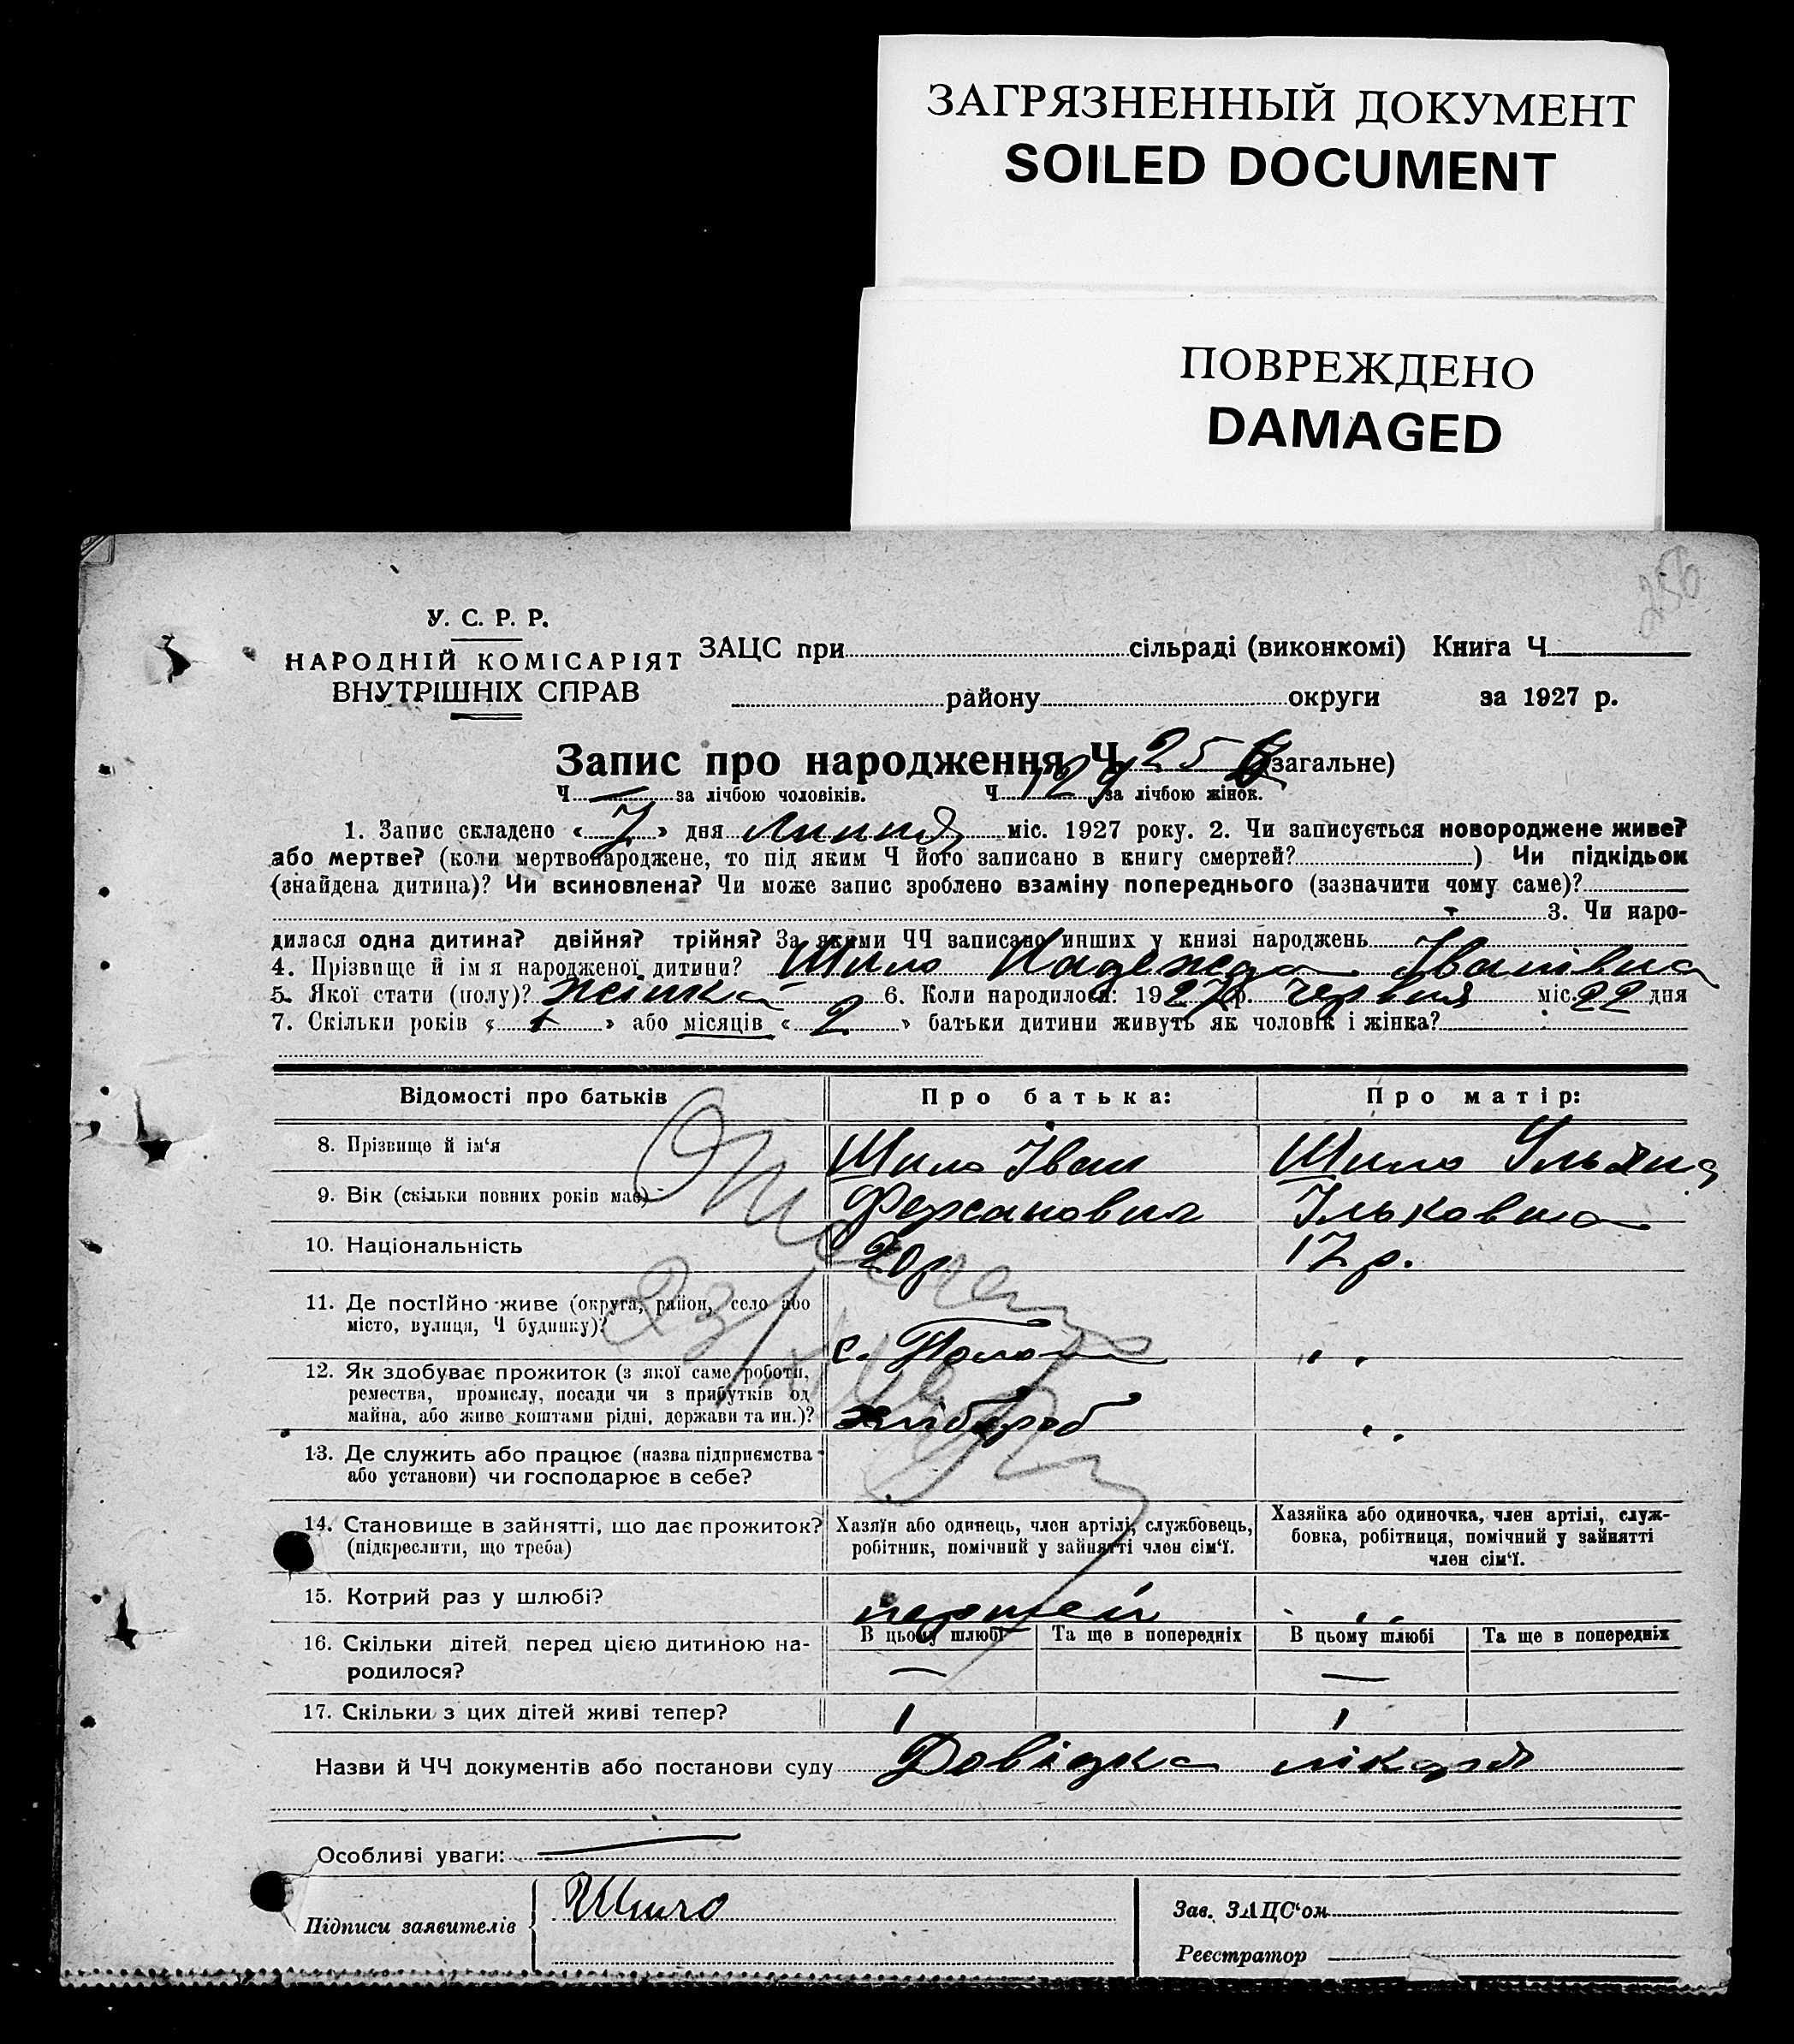 ЗАГРЯЗНЕННЫЙ ДОКУМЕНТ
SOILED DOCUMENT
ПОВРЕЖДЕНО
DAMAGED
У. С. Р. Р.
НАРОДНІЙ КОМІСАРІЯТ
ВНУТРІШНІХ СПРАВ
ЗАЦС при сільраді (виконкомі) Книга Ч
району округи за 1927 р.
Запис про народження Ч 25 (загальне)
Ч — за лічбою чоловіків. Ч 129 за лічбою жінок.
1. Запис складено « 7 » дня липня міс. 1927 року. 2. Чи записується новороджене живе?
або мертве? (коли мертвонароджене, то під яким Ч його записано в книгу смертей? ) Чи підкідьок
(знайдена дитина)? Чи всиновлена? Чи може запис зроблено взаміну попереднього (зазначити чому саме)?
3. Чи наро-
дилася одна дитина? двійня? трійня? За якими ЧЧ записано инших у книзі народжень
4. Прізвище й ім я народженої дитини? Шило Надежда Іванівна
5. Якої стати (полу)? жінка 6. Коли народилося: 1927 р. червня міс. 22 дня
7. Скільки років « » або місяців « 2 » батьки дитини живуть як чоловік і жінка?
Відомості про батьків Про батька: Про матір:
8. Прізвище й ім‘я Шило Іван Шило Ульяна
9. Вік (скільки повних років має) Ільковна
10. Національність 20 р. 17 р.
11. Де постІйно живе (округа, район, село або
місто, вулиця, Ч будинку)? с. Пологи „ „
12. Як здобуває прожиток (з якої саме роботи,
ремества, промислу, посади чи з прибутків од
майна, або живе коштами рідні, держави та ин.)? хлібороб „ „
13. Де служить або працює (назва підприємства
або установи) чи господарює в себе?
14. Становище в зайнятті, що дає прожиток?
(підкреслити, що треба)
Хазяїн або одинець, член артілі, службовець,
робітник, помічний у зайнятті член сім‘ї.
Хазяйка або одиночка, член артілі, служ-
бовка, робітниця, помічний у зайнятті
член сім‘ї.
15. Котрий раз у шлюбі? першей „ „
16. Скільки дітей перед цією дитиною на-
родилося?
В цьому шлюбі Та ще в попередніх В цьому шлюбі Та ще в попередніх
— —
17. Скільки з цих дітей живі тепер? 1 1
Назви й ЧЧ документів або постанови суду Довідка лікаря
Особливі уваги: —
Підписи заявителів Шило
Зав. ЗАЦС‘ом
Реєстратор